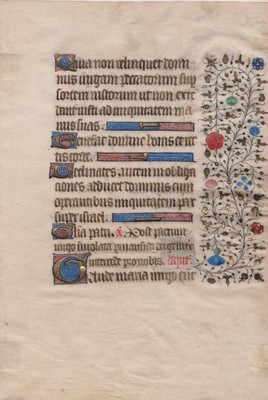 Quia non relinquet domi
nus virgam peccatorum sup
sortem iustorum ut non exte
dant iusti ad iniquitatem ma
nus suas.
Benefac domine bonis et rec
tis corde.
Declinantes autem in obliga
ciones adducet dominus cum
operantibus iniquitatem pax
super israel.
Gloria patri. a. Post partum
virgo inviolata permansisti
Intercede pro nobis.
Gaude maria virgo